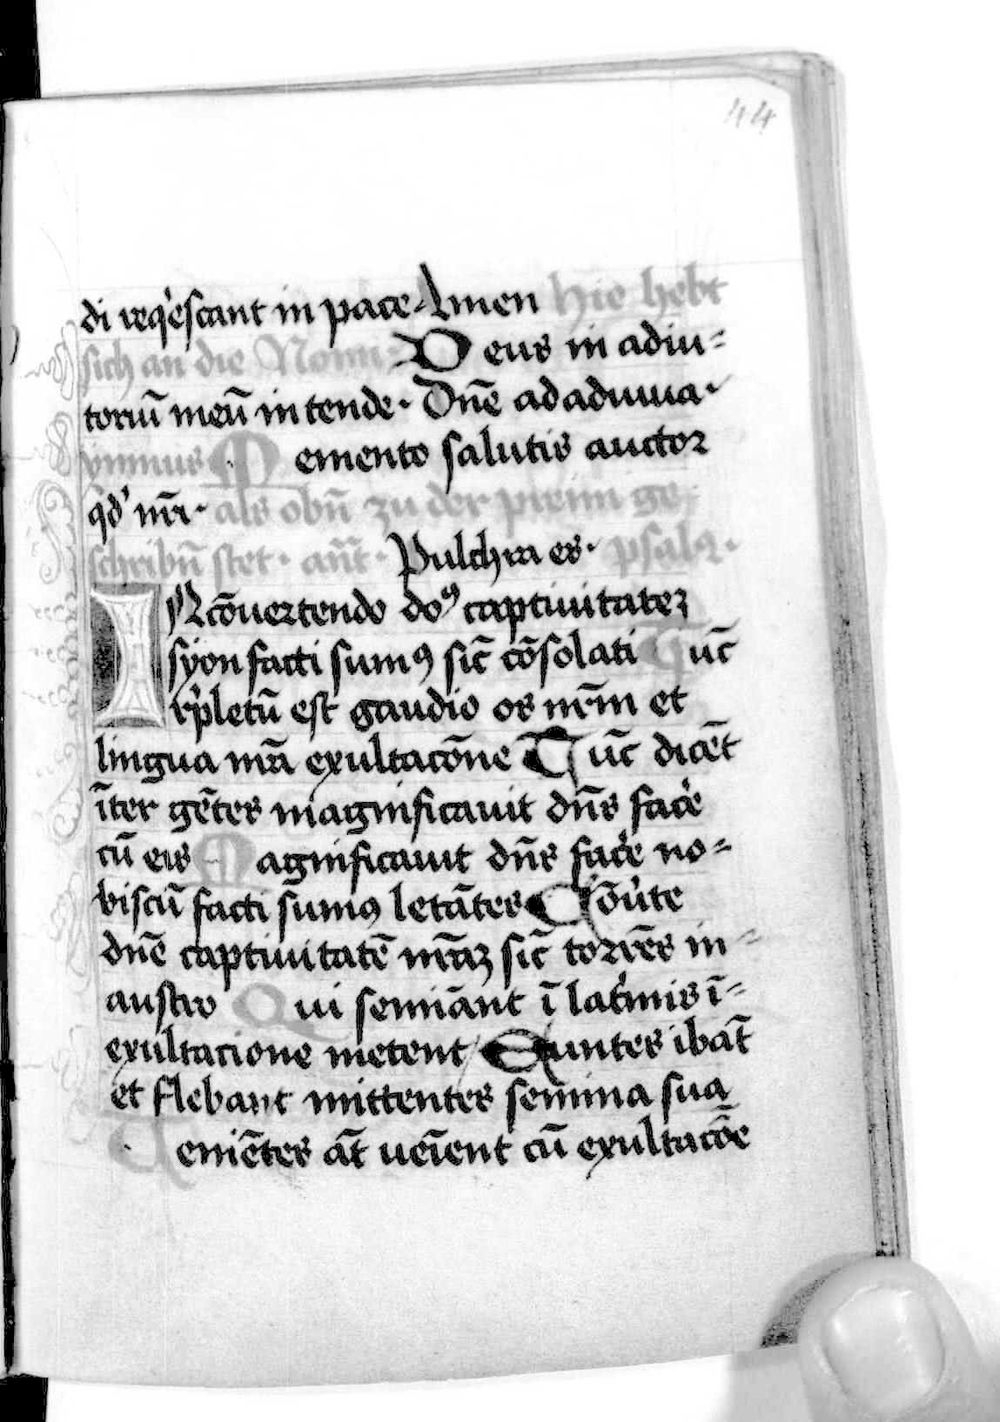 44
di req̉escant in pace. Amen Hie hebt
sich an die Nonn: Deus in adiu-
toriū meū in tende. Dn̄e ad adiuua.
ymnus Memento salutis auctor
q̊d' nr̄i. als obn̄ zu der preim ge-
schribn̄ stet. an̄t. Pulchra es. psalꝫ.
IN cōuertendo doꝰ captiuitateꝫ
syon facti sumꝰ sic̄ cōsolati Tūc
rp̄letū est gaudio os nr̄m et
lingua nr̄a exultacōne Tūc dicēt
īter gētes magnificauit dn̄s facẻ
cū eis Magnificauit dn̄s facẻ no-
biscū facti sumꝰ letātes Cōuẻte
dn̄e captiuitatē nr̄aꝫ sic̄ torrēs in
austro Qui semiāant ī lac̉mis ī-
exultacione metent Euntes ibāt
et flebant mittentes semina sua
Ueniētes at̄ ueīent cū exultacōe